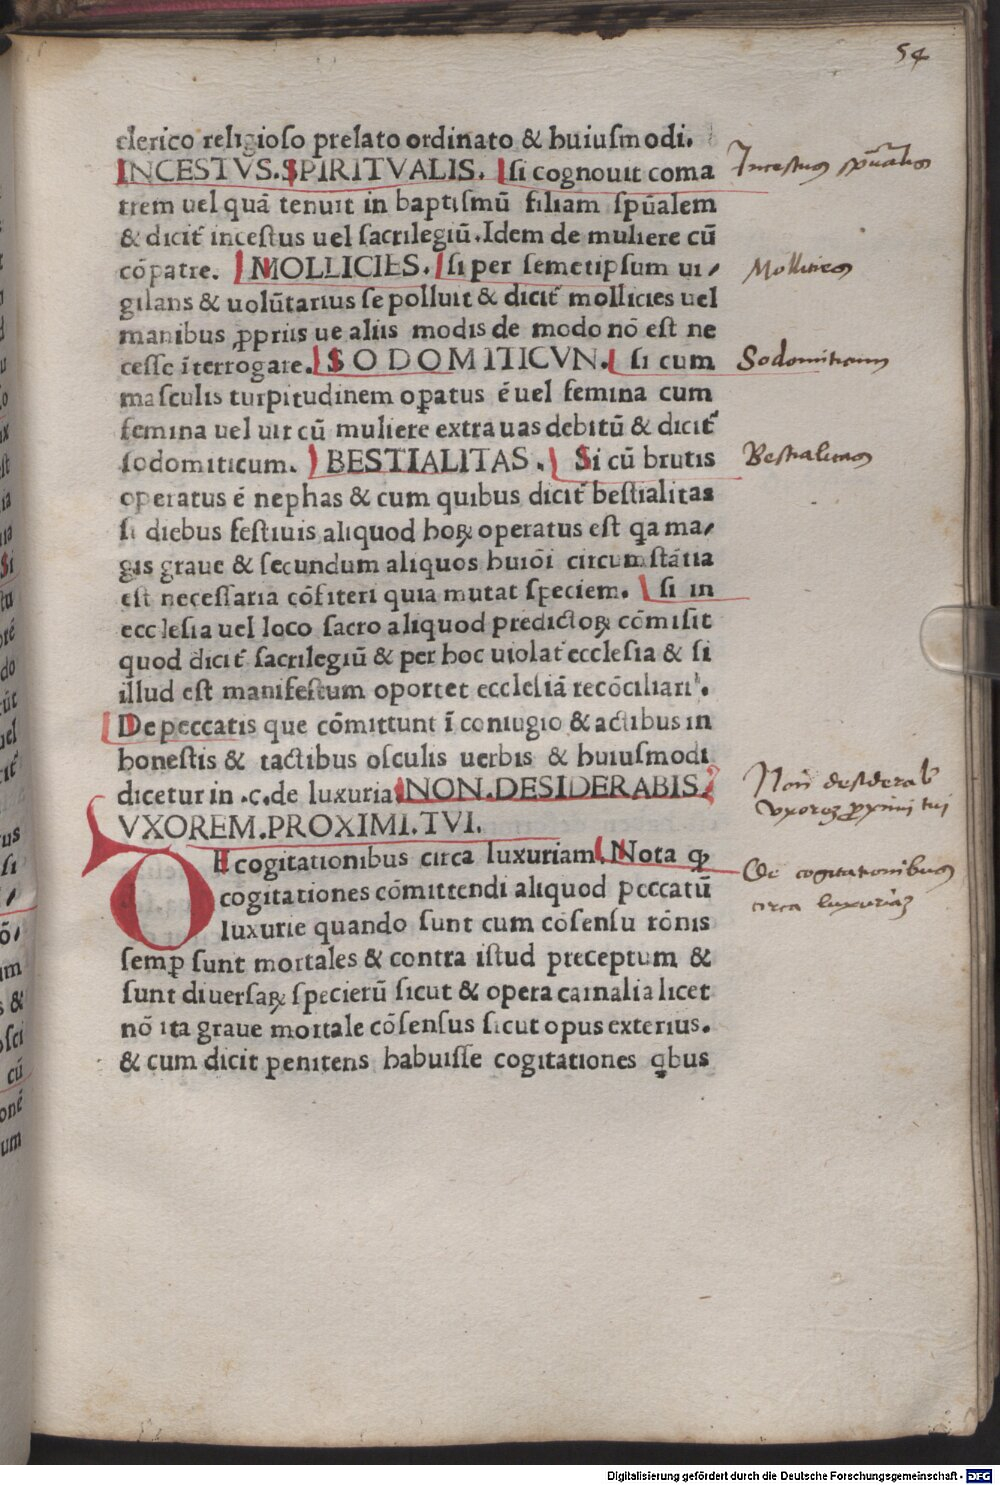 54
clerico religioso prelato ordinato & huiusmodi.
INCESTVS.SPIRITVALIS. si cognouit coma
trem uel quā tenuit in baptismū filiam spūalem
& dicit̄ incestus uel sacrilegiū.Idem de muliere cū
cōpatre. MOLLICIES. si per semetipsum ui/
gilans & uolūtarius se polluit & dicit̄ mollicies uel
manibus ꝓpriis ue aliis modis de modo nō est ne
cesse īterrogare. SODOMITICVN. si cum
masculis turpitudinem oꝑatus ē uel femina cum
femina uel uir cū muliere extra uas debitū & dicit̄
sodomiticum. BESTIALITAS. Si cū brutis
operatus ē nephas & cum quibus dicit̄ bestialitas
si diebus festiuis aliquod hoꝝ operatus est qa ma/
gis graue & secundum aliquos huiōi circumstātia
est necessaria cōfiteri quia mutat speciem. si in
ecclesia uel loco sacro aliquod predictoꝝ cōmisit
quod dicit̄ sacrilegiū & per hoc uiolat̄ ecclesia & si
illud est manifestum oportet ecclesiā recōciliari.
De peccatis que cōmittunt ī coniugio & actibus in
honestis & tactibus osculis uerbis & huiusmodi
dicetur in .c.de luxuria NON.DESIDERABIS.
VXOREM.PROXIMI.TVI.
DE cogitationibus circa luxuriam. Nota ꝙ
cogitationes cōmittendi aliquod peccatū
luxurie quando sunt cum cōsensu rōnis
semꝑ sunt mortales & contra istud preceptum &
sunt diuersaꝝ specierū sicut & opera carnalia licet
nō ita graue mortale cōsensus sicut opus exterius.
& cum dicit penitens habuisse cogitationes qbus
Incestus spūalis
Mollities
Sodomiticum
Bestialitas
Non desiderab
vxorez ꝓximi tui
De cogitationibus
circa luxuriaz
Digitalisierung gefördert durch die Deutsche Forschungsgemeinschaft - DFG